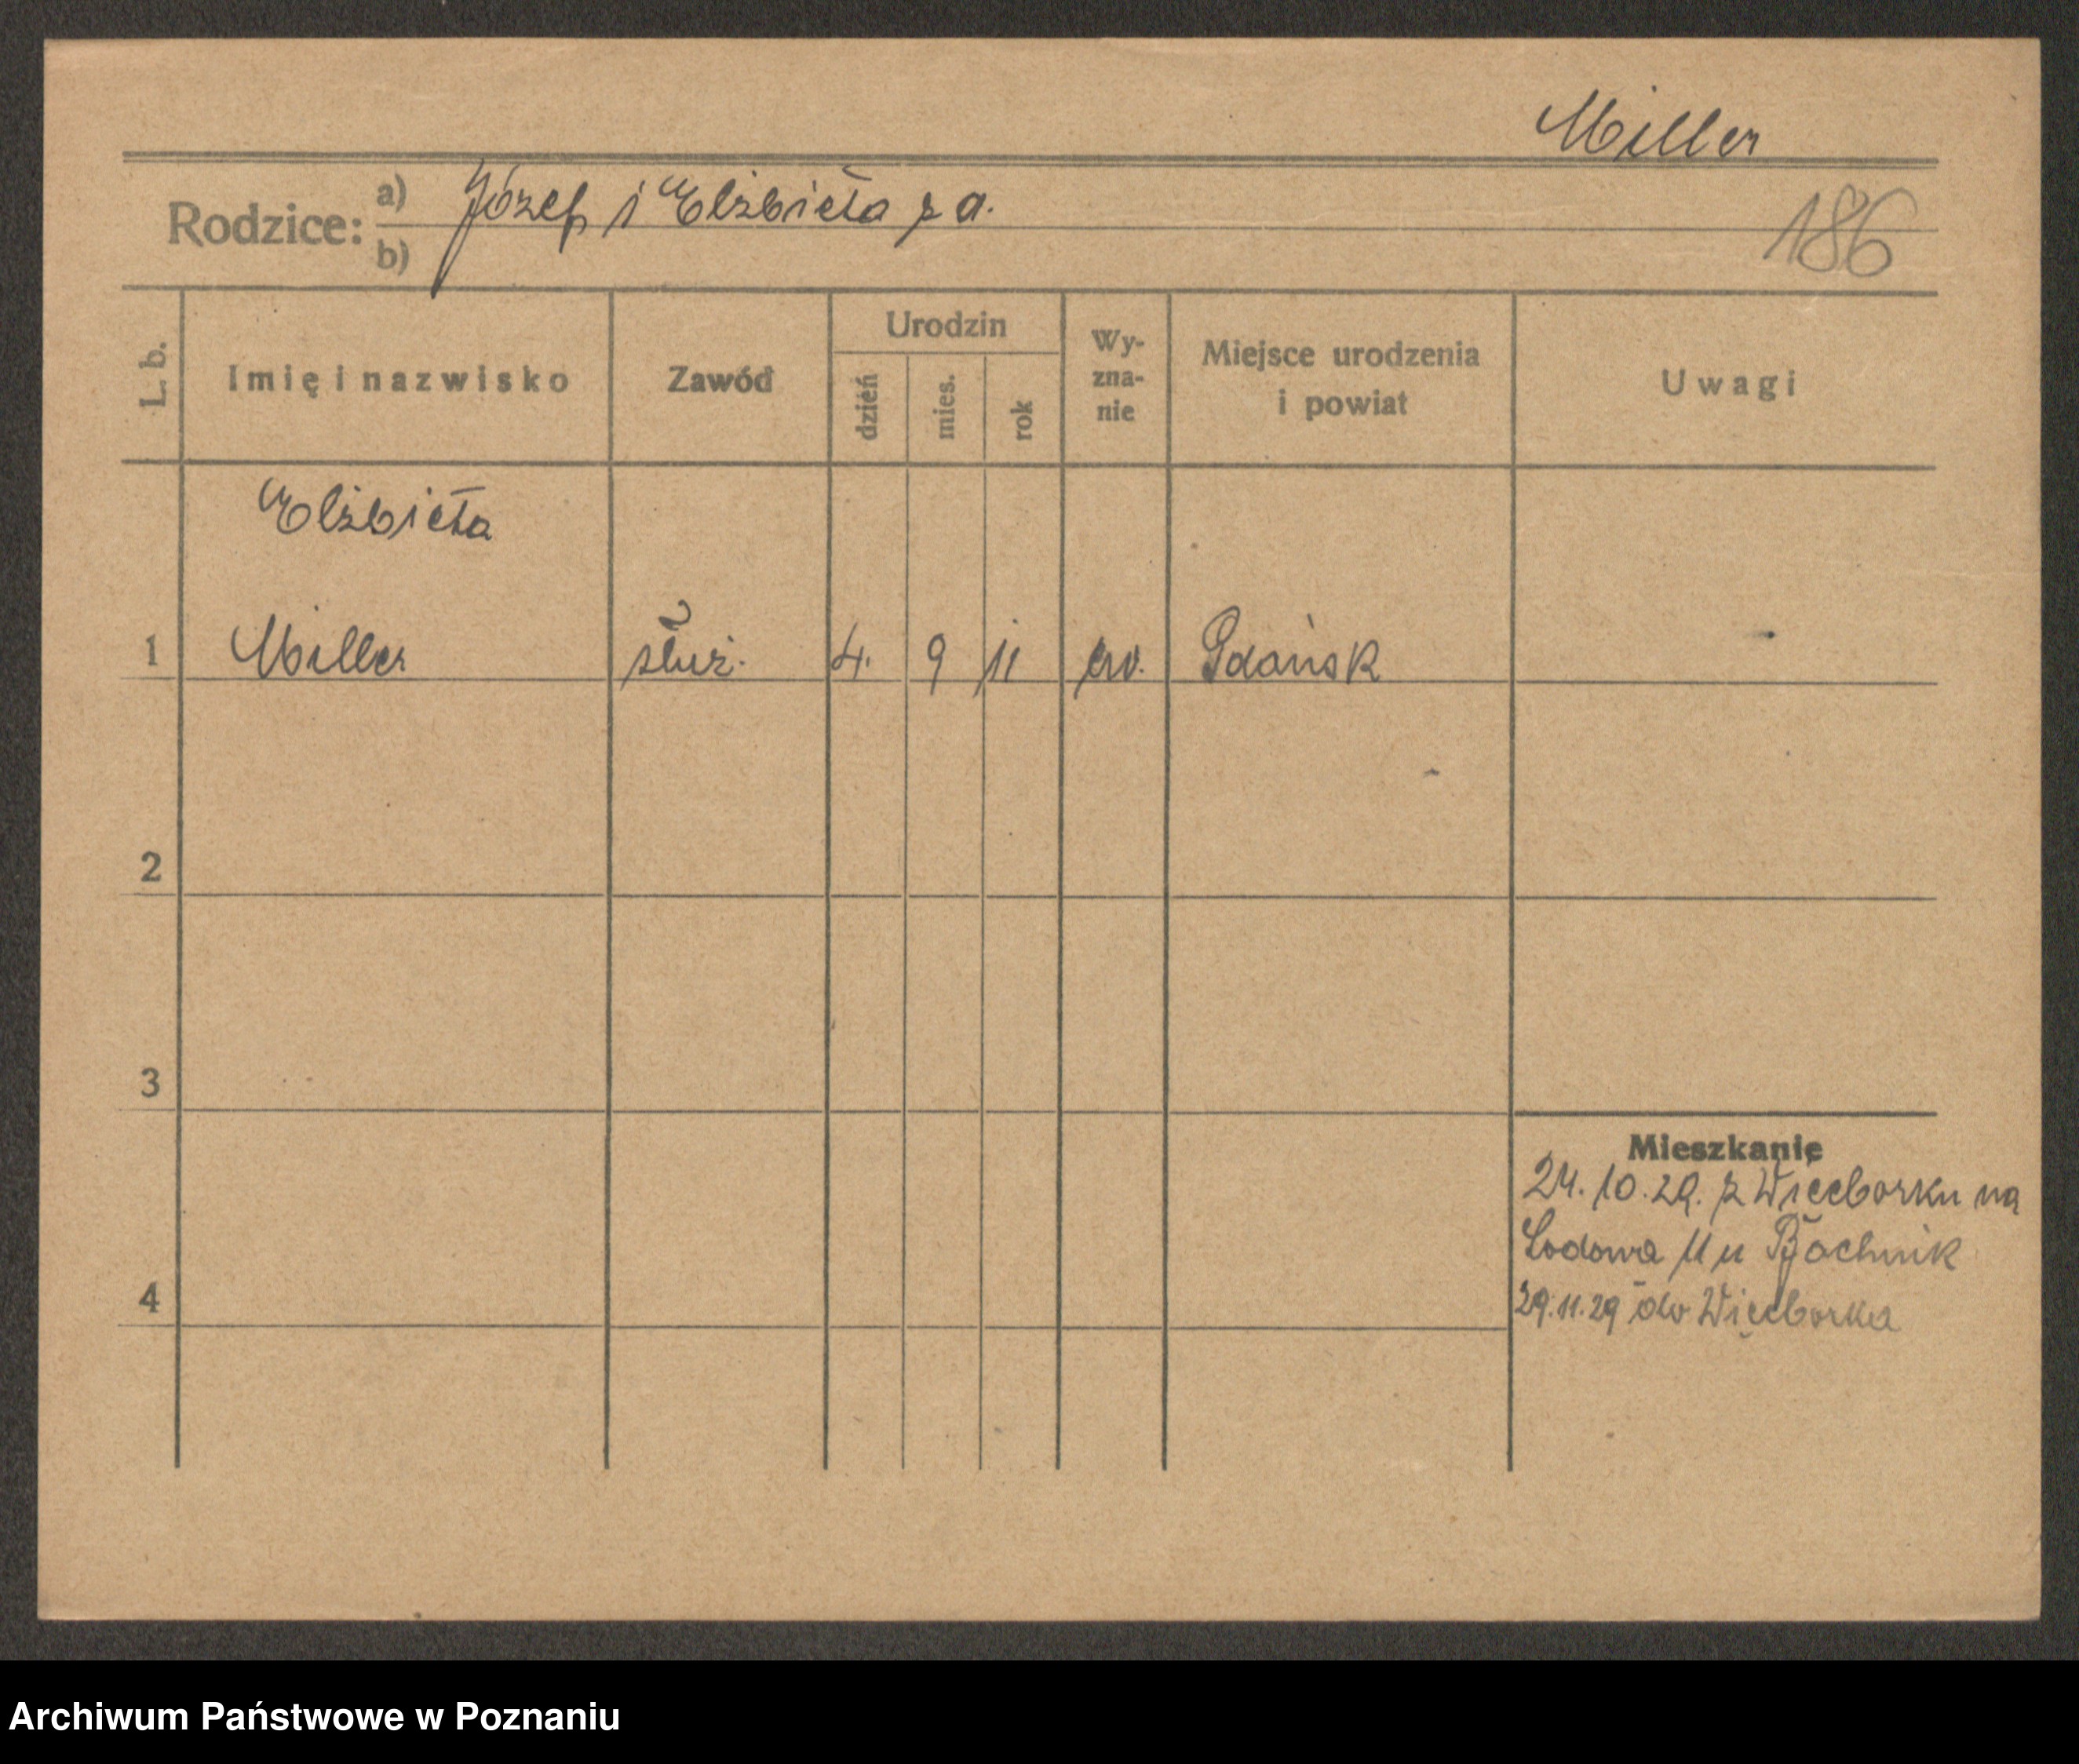 Miller
Rodzice: a) Józef i Elżbieta z d.
b)
186
L. b. Imię i nazwisko Zawód Urodzin dzień mies. rok Wy-zna-nie Miejsce urodzenia i powiat Uwagi
Elżbieta
1 Miller służ. 4. 9 11 ew. Gdańsk
2
3
Mieszkanie
24.10.29. z Więcborku na
Lodowa 11 u
4
29.11.29 do Więcborka
Archiwum Państwowe w Poznaniu